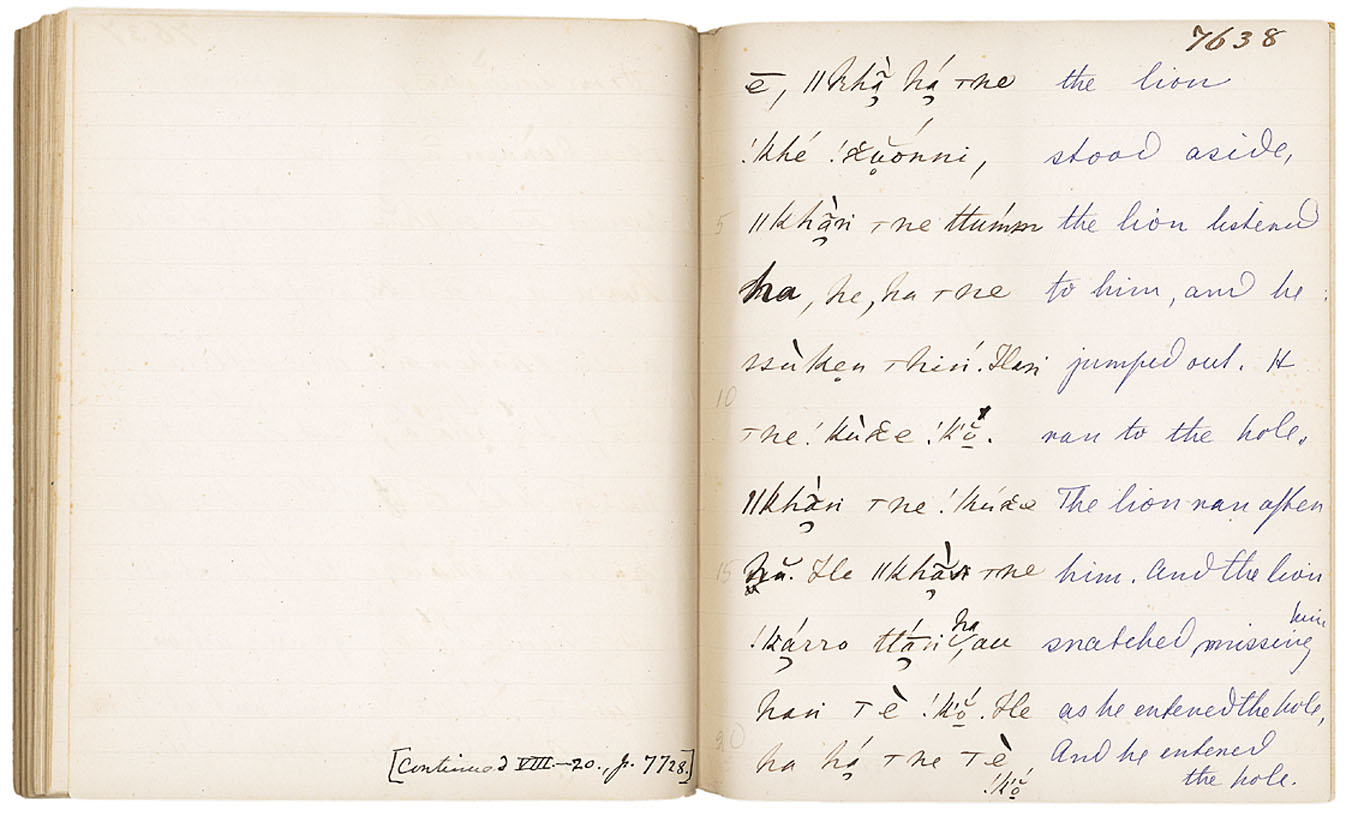 [Continued VIII.—20., p. 7728.]
7638
ē, ǁkhą̀̃ hą́ ⊤ne the lion
!khé !x̱ŭ̥ónni, stood aside,
5 ǁkhą̀̃n ⊤ne ttúmm the lion listened
ha, he, ha ⊤ne to him, and he
ssùken ⊤hiń. Han jumped out. He
10
⊤ne !kùx̱e !k'ŏ̱́. ran to the hole.
ǁkhą̀̃n ⊤ne !kúx̱e The lion ran after
15 hă. He ǁkhą̀̃ ⊤ne him. And the lion
!ką́rro ttą́̄n ha, au snatched missing him
han ⊤è !k'ŏ̱́. He as he entered the hole,
20 ha hą́ ⊤ne ⊤è And he entered
!k'ŏ̱́ the hole.